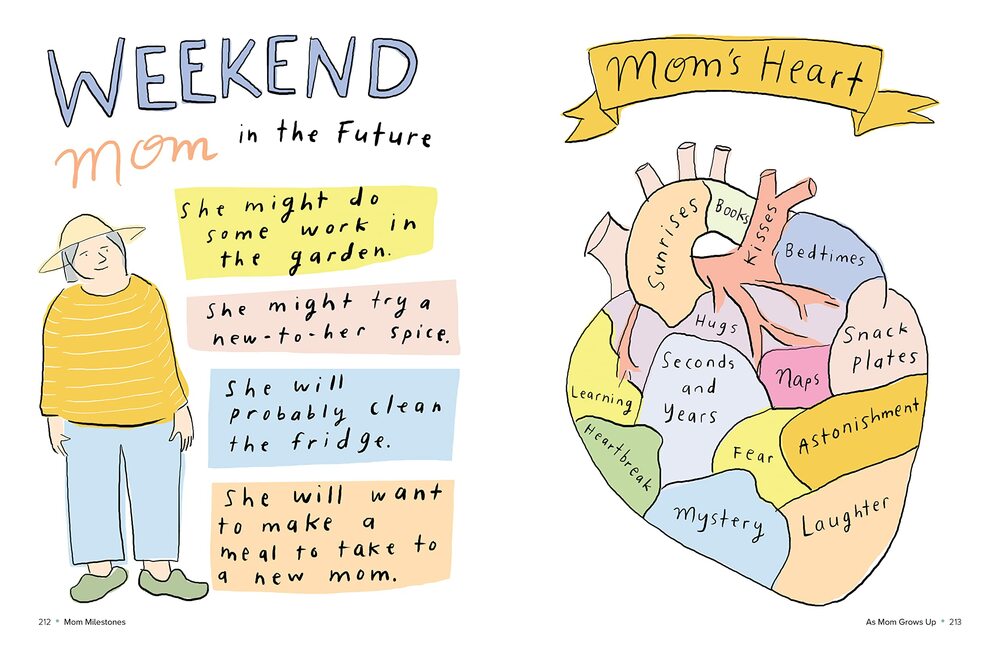 WEEKEND
mom in the Future
She might do
some work in
the garden.
She might try a
new-to-her spice.
She will
probably clean
the fridge.
She will want
to make a
meal to take to
a new mom.
212 • Mom Milestones
Mom's Heart
Sunrises
Books
Kisses
Bedtimes
Hugs
Snack
Plates
Seconds
and
Years
Naps
Learning
Astonishment
Heartbreak
Fear
Mystery
Laughter
As Mom Grows Up • 213